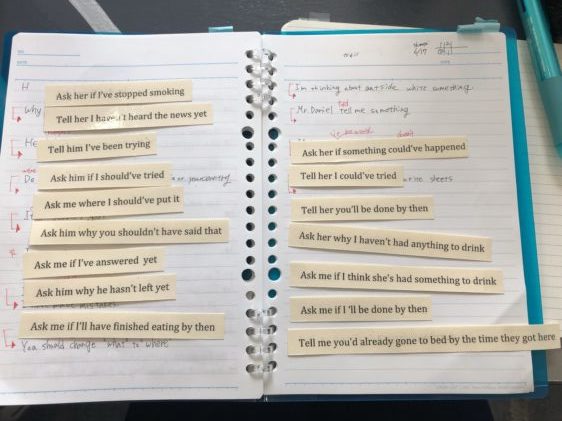 H
Ask her if I've stopped smoking
Why
Tell her I haven't heard the news yet
He
Tell him I've been trying
Ask him if I should've tried
Do
Ask me where I should've put it
Ask him why you shouldn't have said that
Ask me if I've answered yet
Ask him why he hasn't left yet
Ask me if I'll have finished eating by then
You should change "what" to "where"
I'm thinking about outside write something.
told
Mr. Daniel tell me something
Ask her if something could've happened
Tell her I could've tried
Tell her you'll be done by then
Ask her why I haven't had anything to drink
Ask me if I think she's had something to drink
Ask me if I 'll be done by then
Tell me you'd already gone to bed by the time they got here